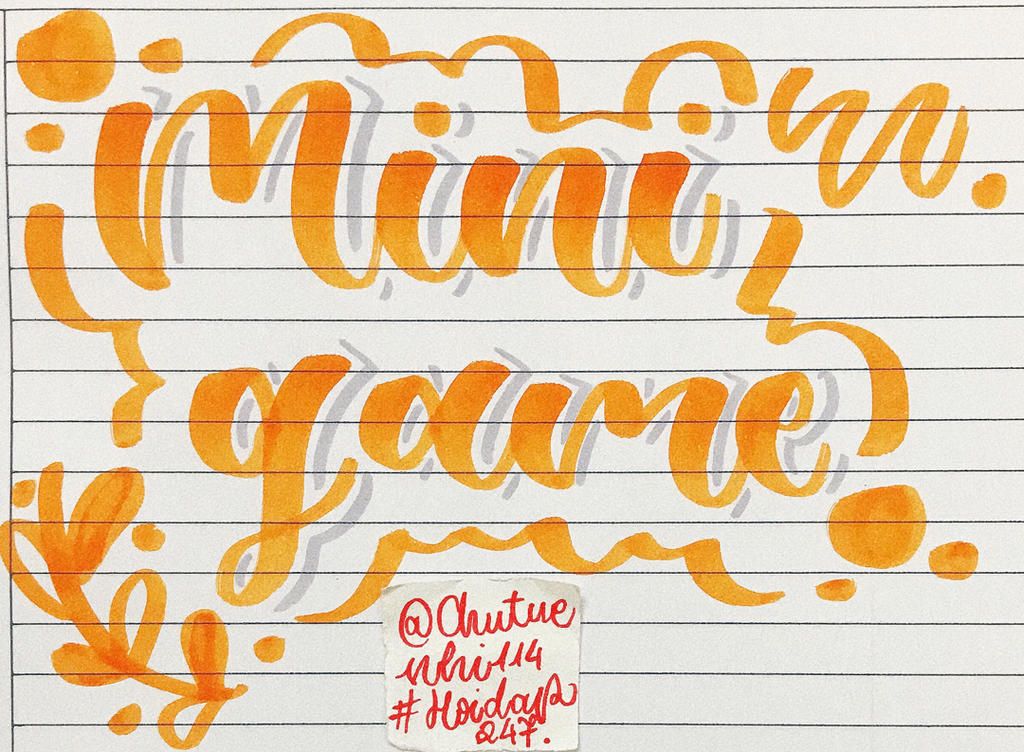 Mini
game
@Chutue
nhi1114
#Hoidap
247.